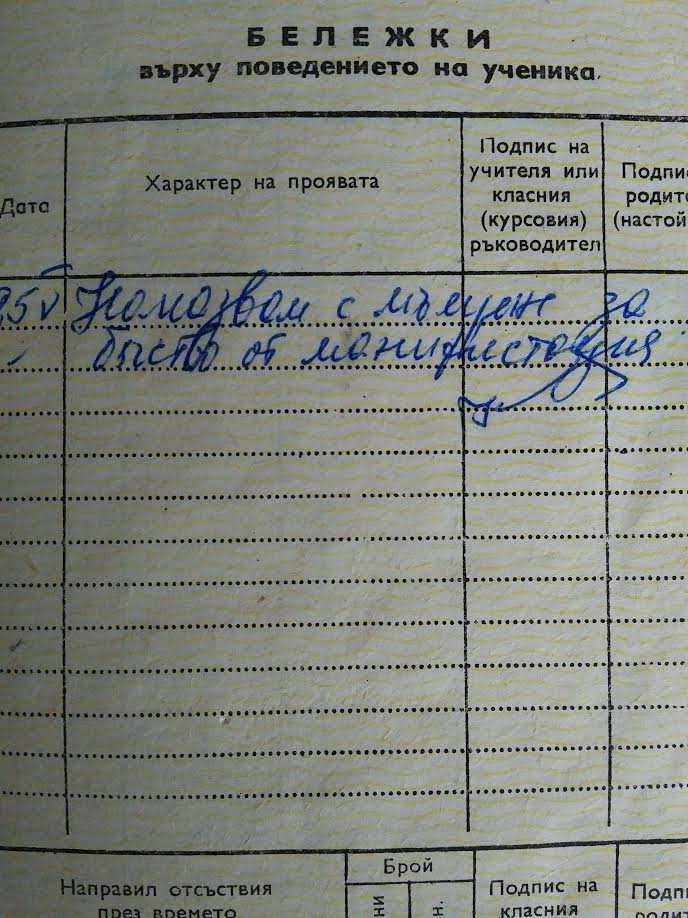 БЕЛЕЖКИ
върху поведението на ученика.
Дата
Характер на проявата
Подпис на
учителя или
класния
(курсовия)
ръководител
Подпис
родите
(настой
25 V Наказвам с мъмрене за
бягство от манифестация
Направил отсъствия
през времето
Брой
ни
н.
Подпис на
класния
Подп
роди